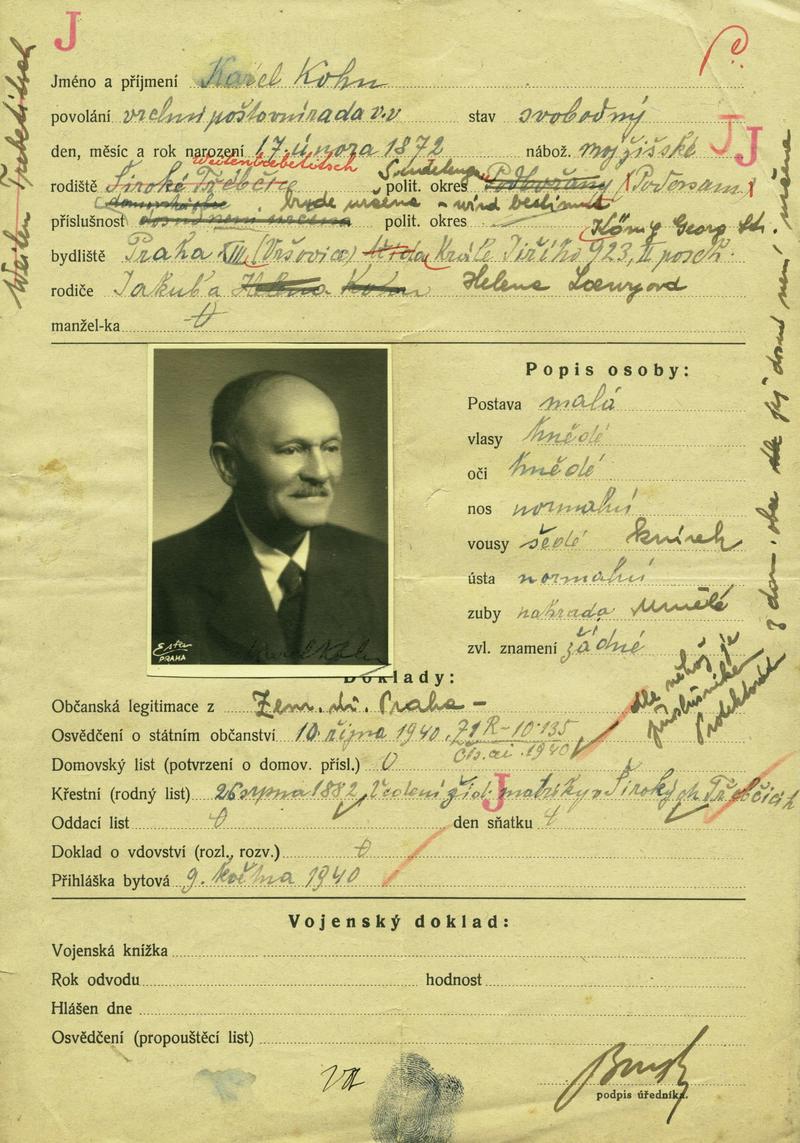 J
Jméno a příjmení Karel Kohn
povolání vrchní poštovní rada v.v stav svobodný
J J
den, měsíc a rok narození 17. února 1872 nábož. mojžíšské
Weitentrebetitsch
rodiště Široké Třebčice polit. okres Podbořany (Podersam)
bude určena - wird bestimmt
příslušnost polit. okres
König Georg Str.
bydliště Praha XIII (Vršovice) třída Krále Jiřího 923, II posch.
rodiče Jakub a Helena Kohn Helene
manžel-ka 0
Popis osoby:
Postava malá
vlasy hnědé
oči hnědé
nos normalní
vousy šedé knírek
ústa normalní
zuby nahrada umělé
zvl. znamení žádné
Ester
PRAHA
Karel Kohn
Doklady:
Občanská legitimace z Zem. úř. Praha -
Osvědčení o státním občanství 10. října 1940, 71 R-10.135
1940
Domovský list (potvrzení o domov. přísl.) 0
J
Křestní (rodný list) 26 srpna 1882, Vedení žid. matriky v Širokých Třebčicích
Oddací list 0 den sňatku
Doklad o vdovství (rozl., rozv.) 0
Přihláška bytová 9. května 1940
dle něhož je
příslušníkem
Protektorátu
Vojenský doklad:
Vojenská knížka
Rok odvodu hodnost
Hlášen dne
Osvědčení (propouštěcí list)
podpis úředníka.